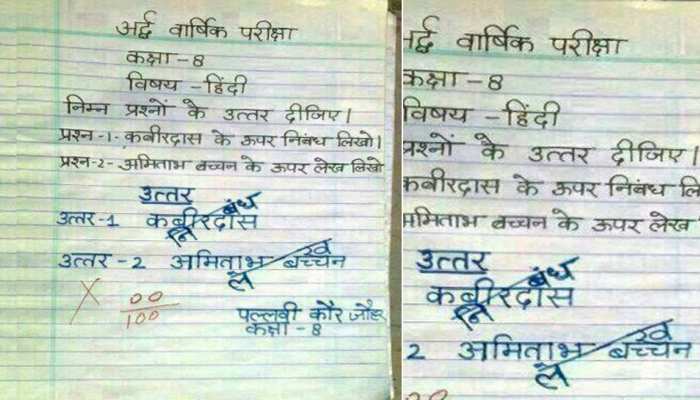 अर्द्ध वार्षिक परीक्षा
कक्षा - 8
विषय - हिंदी
निम्न प्रश्नों के उत्तर दीजिए।
प्रश्न -1- कबीरदास के ऊपर निबंध लिखो।
प्रश्न -2- अमिताभ बच्चन के ऊपर लेख लिखो
उत्तर
उत्तर -1 कबीरदास
निबंध
उत्तर - 2 अमिताभ बच्चन
लेख
X 00/100
पल्लवी कौर जौहर
कक्षा - 8
र्द्ध वार्षिक परीक्षा
कक्षा - 8
विषय - हिंदी
प्रश्नों के उत्तर दीजिए।
कबीरदास के ऊपर निबंध लि
अमिताभ बच्चन के ऊपर लेख
उत्तर
कबीरदास
निबंध
2 अमिताभ बच्चन
लेख